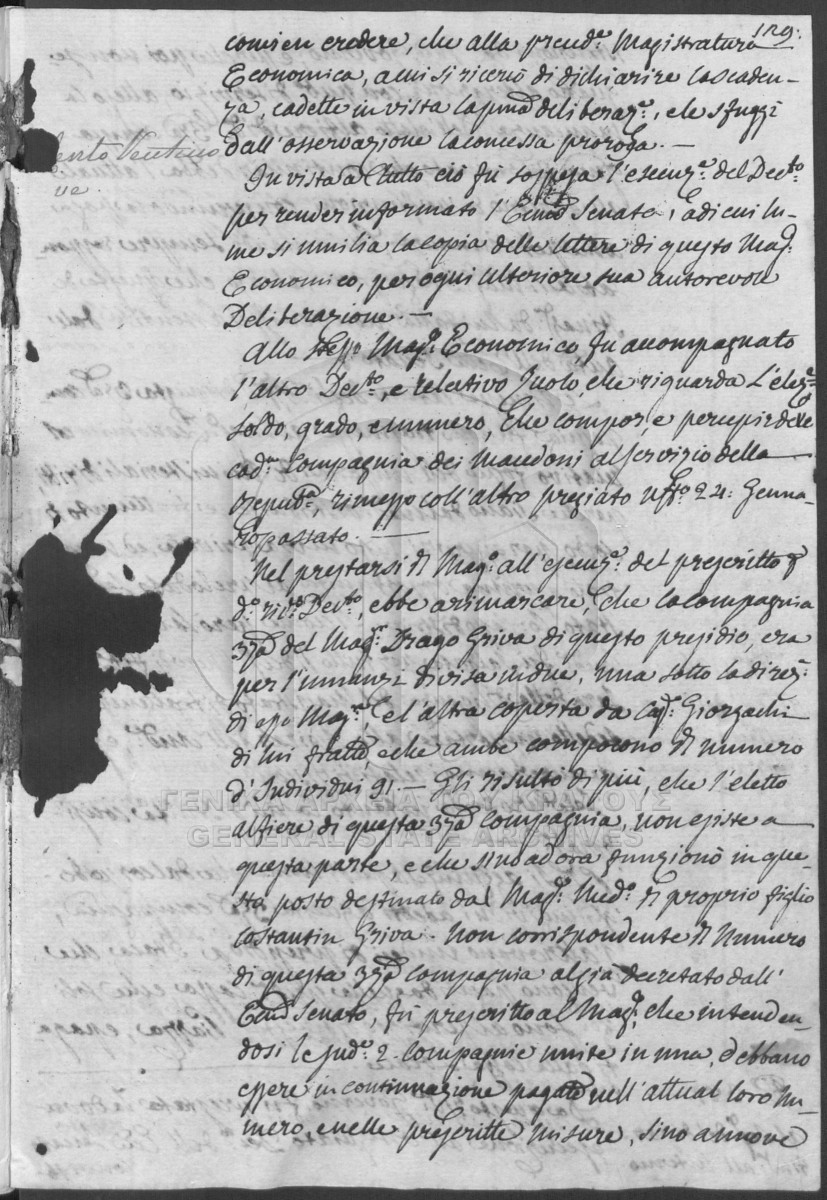 129.
convien credere, che alla pred.ª Magistratura
Economica, a cui si ricercò di dichiarire la scaden-
za, cadette in vista la p.ma deliberaz.e, e le sfuggì
dall'osservazione la concessa proroga. —
ento Ventino
ve
In vista a tutto ciò fù sospesa l'esecuz.e del Dec.to
per render informato l'Ecc.mo Senato, a di cui lu-
me si umilia la copia delle lettere di questo Mag.o
Economico, per ogni ulteriore sua autorevole
Deliberazione. —
Allo stesso Mag.o Economico, fu accompagnato
l'altro Dec.to, e relativo Ruolo, che riguarda l'elez.e
soldo, grado, e numero, che compor, e percepir deve
cad.na Compagnia dei Macedoni al servizio della
Repub.ca, rimesso coll'altro pregiato uff.o 24: Genna-
ro passato. —
Nel prestarsi il Mag.o all'esecuz.e del prescritto
d.o riv.to Dec.to, ebbe a rimarcare, che la compagnia
37.ma del Mag.r Drago Griva di questo presidio, era
per l'innanzi divisa in due, una sotto la direz.e
di esso Mag.r, e l'altra coperta da Cap. Giorgachi
di lui frat.o, e che ambe componono il numero
d'Individui 91. — Gli risultò di più, che l'eletto
alfiere di questa 37.ma Compagnia, non esiste a
questa parte, e che sino ad ora funzionò in que-
sto posto destinato dal Mag.r Med.o il proprio figlio
ΓΕΝΙΚΑ ΑΡΧΕΙΑ ΤΟΥ ΚΡΑΤΟΥΣ
GENERAL STATE ARCHIVES
Costantin Griva. Non corrispondente il Numero
di questa 37.ma Compagnia al già decretato dall'
Ecc.mo Senato, fù prescritto al Mag.o, che intenden-
dosi le sud.e 2. Compagnie unite in una, debbano
essere in continuazione pagate nell'attual loro nu-
mero, e nelle prescritte misure, sino a nuove